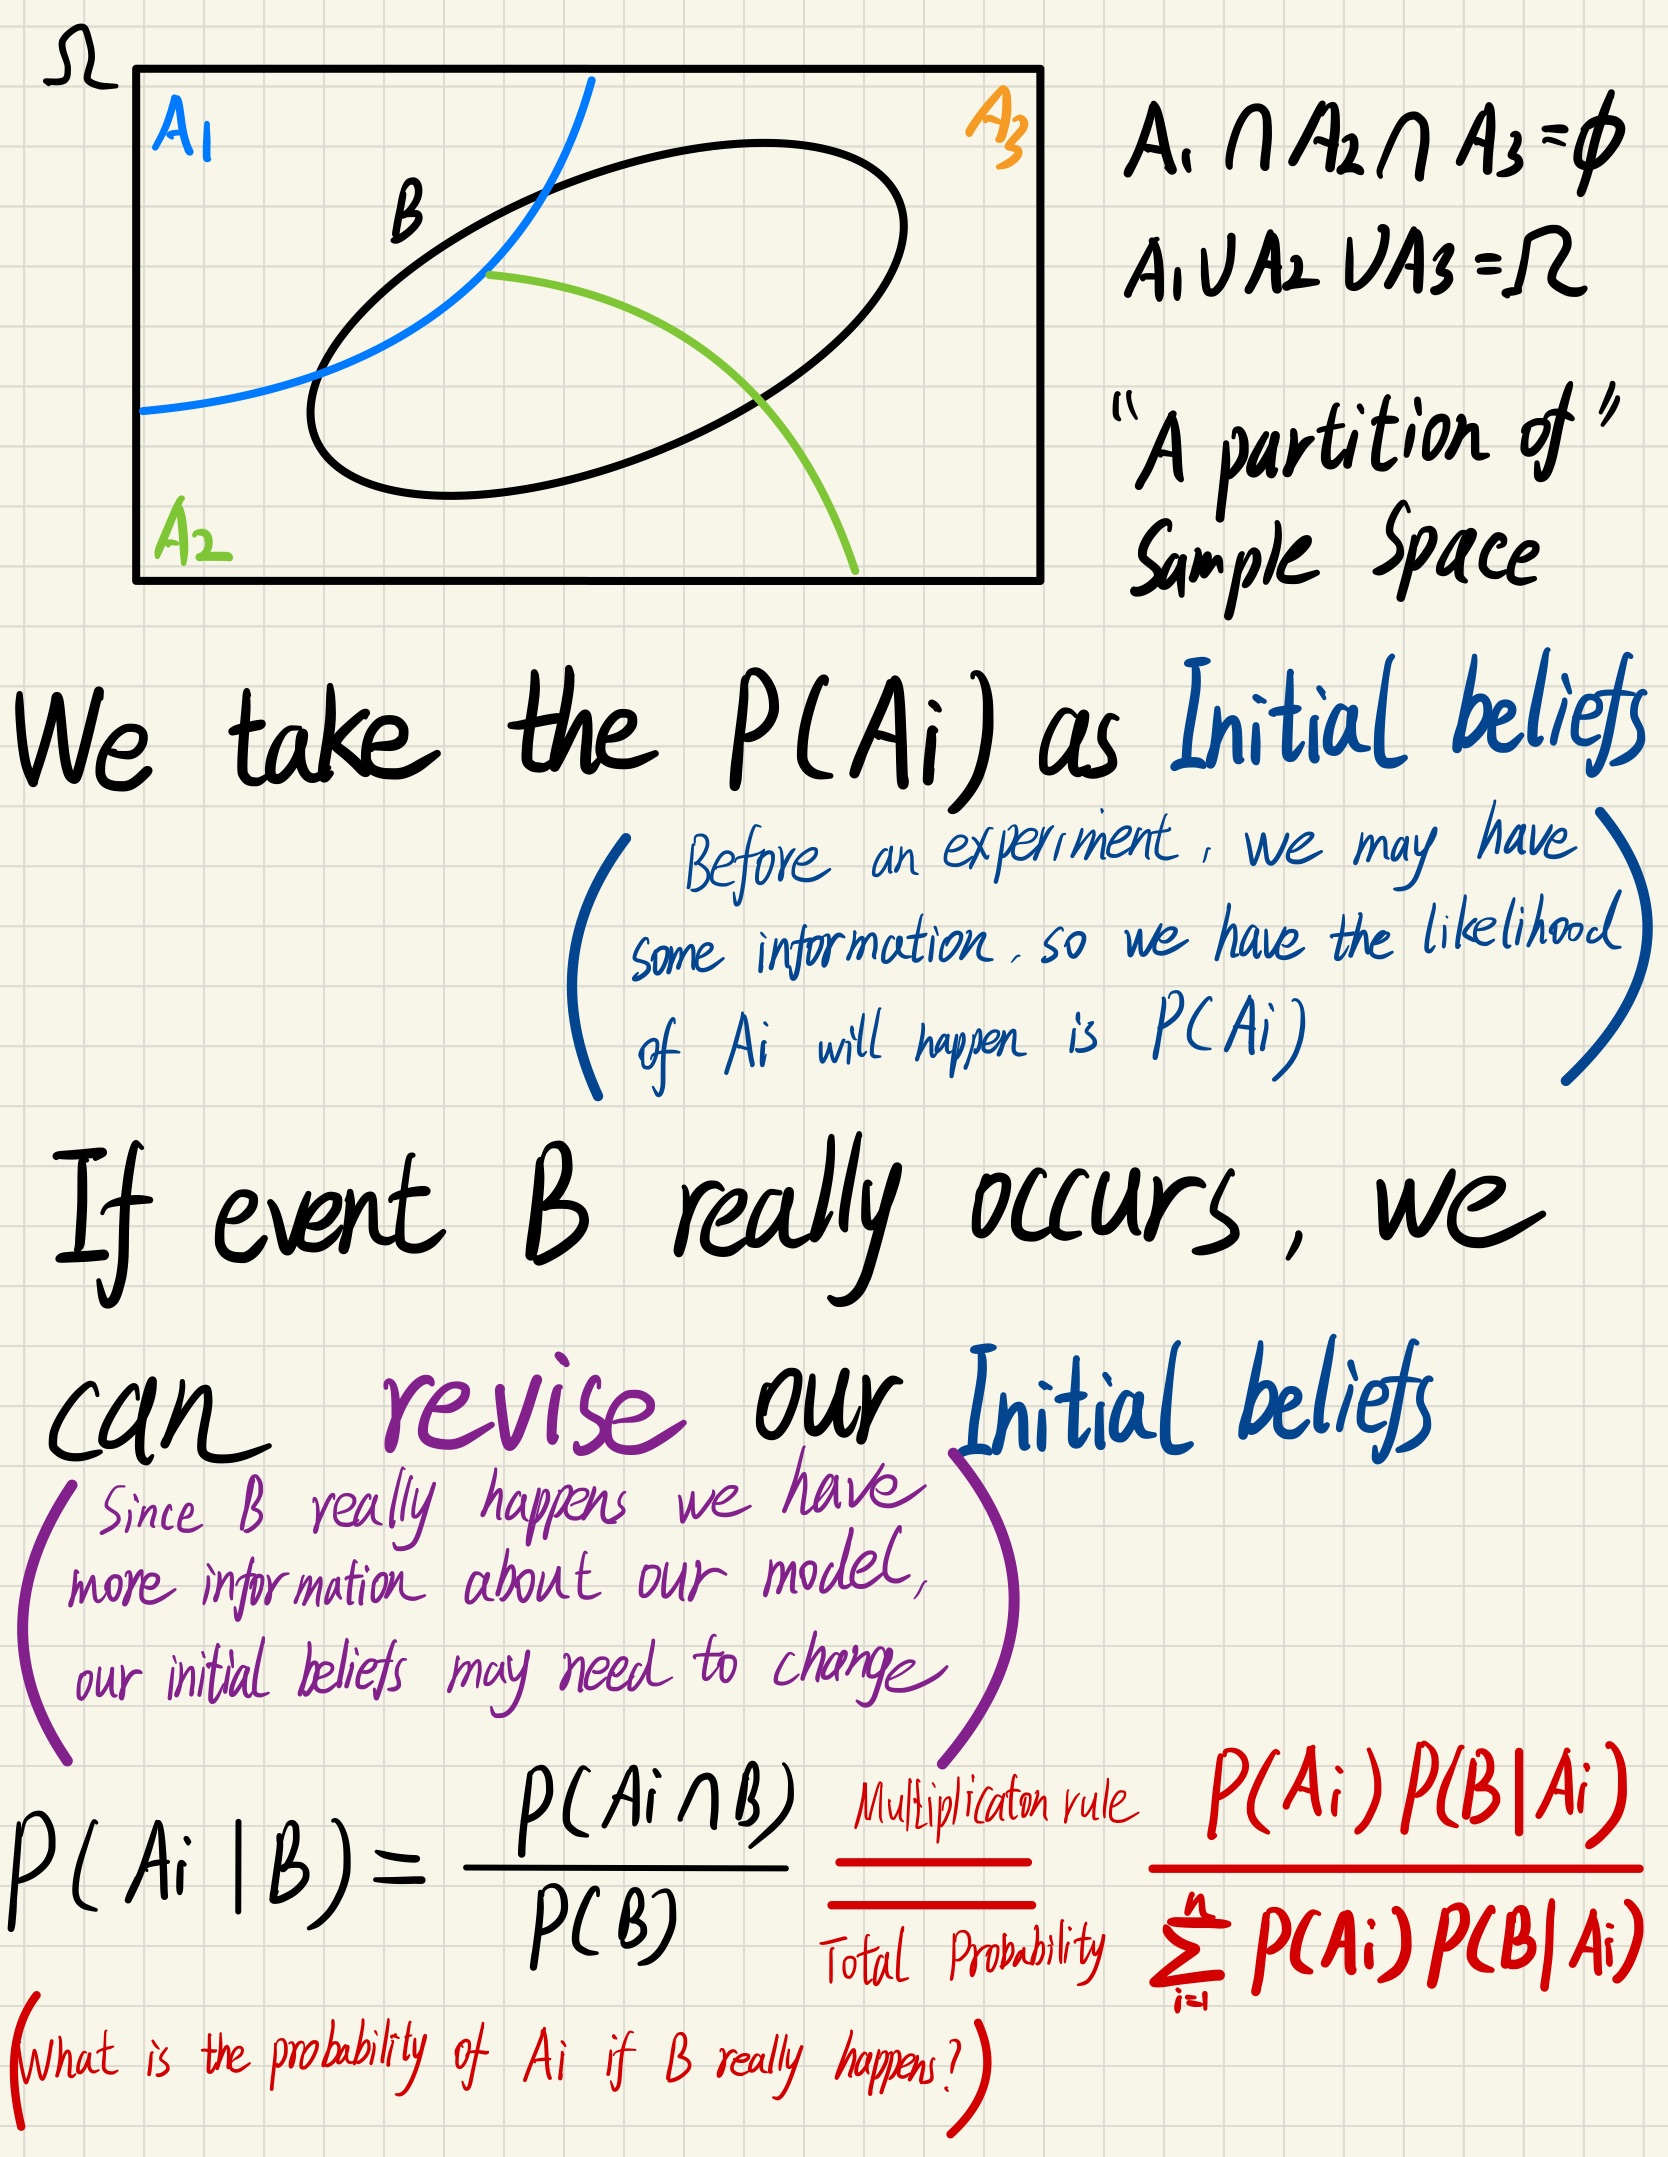 Ω
A1
A3
B
A2
A1 ∩ A2 ∩ A3 = ϕ
A1 ∪ A2 ∪ A3 = Ω
"A partition of"
Sample Space
We take the P(Ai) as Initial beliefs
(Before an experiment, we may have
some information, so we have the likelihood
of Ai will happen is P(Ai))
If event B really occurs, we
can revise our Initial beliefs
(Since B really happens we have
more information about our model,
our initial beliefs may need to change)
P(Ai | B) = P(Ai ∩ B) / P(B) = P(Ai) P(B | Ai) / ∑ i=1 n P(Ai) P(B | Ai)
Multiplicaton rule
Total Probability
(What is the probability of Ai if B really happens?)